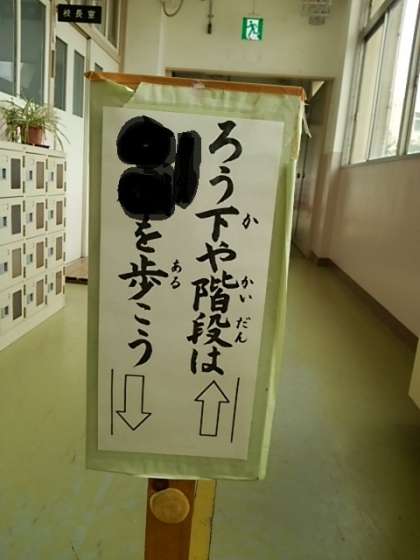 校長室
ろう下や階段は
か かい だん
を歩こう
ある